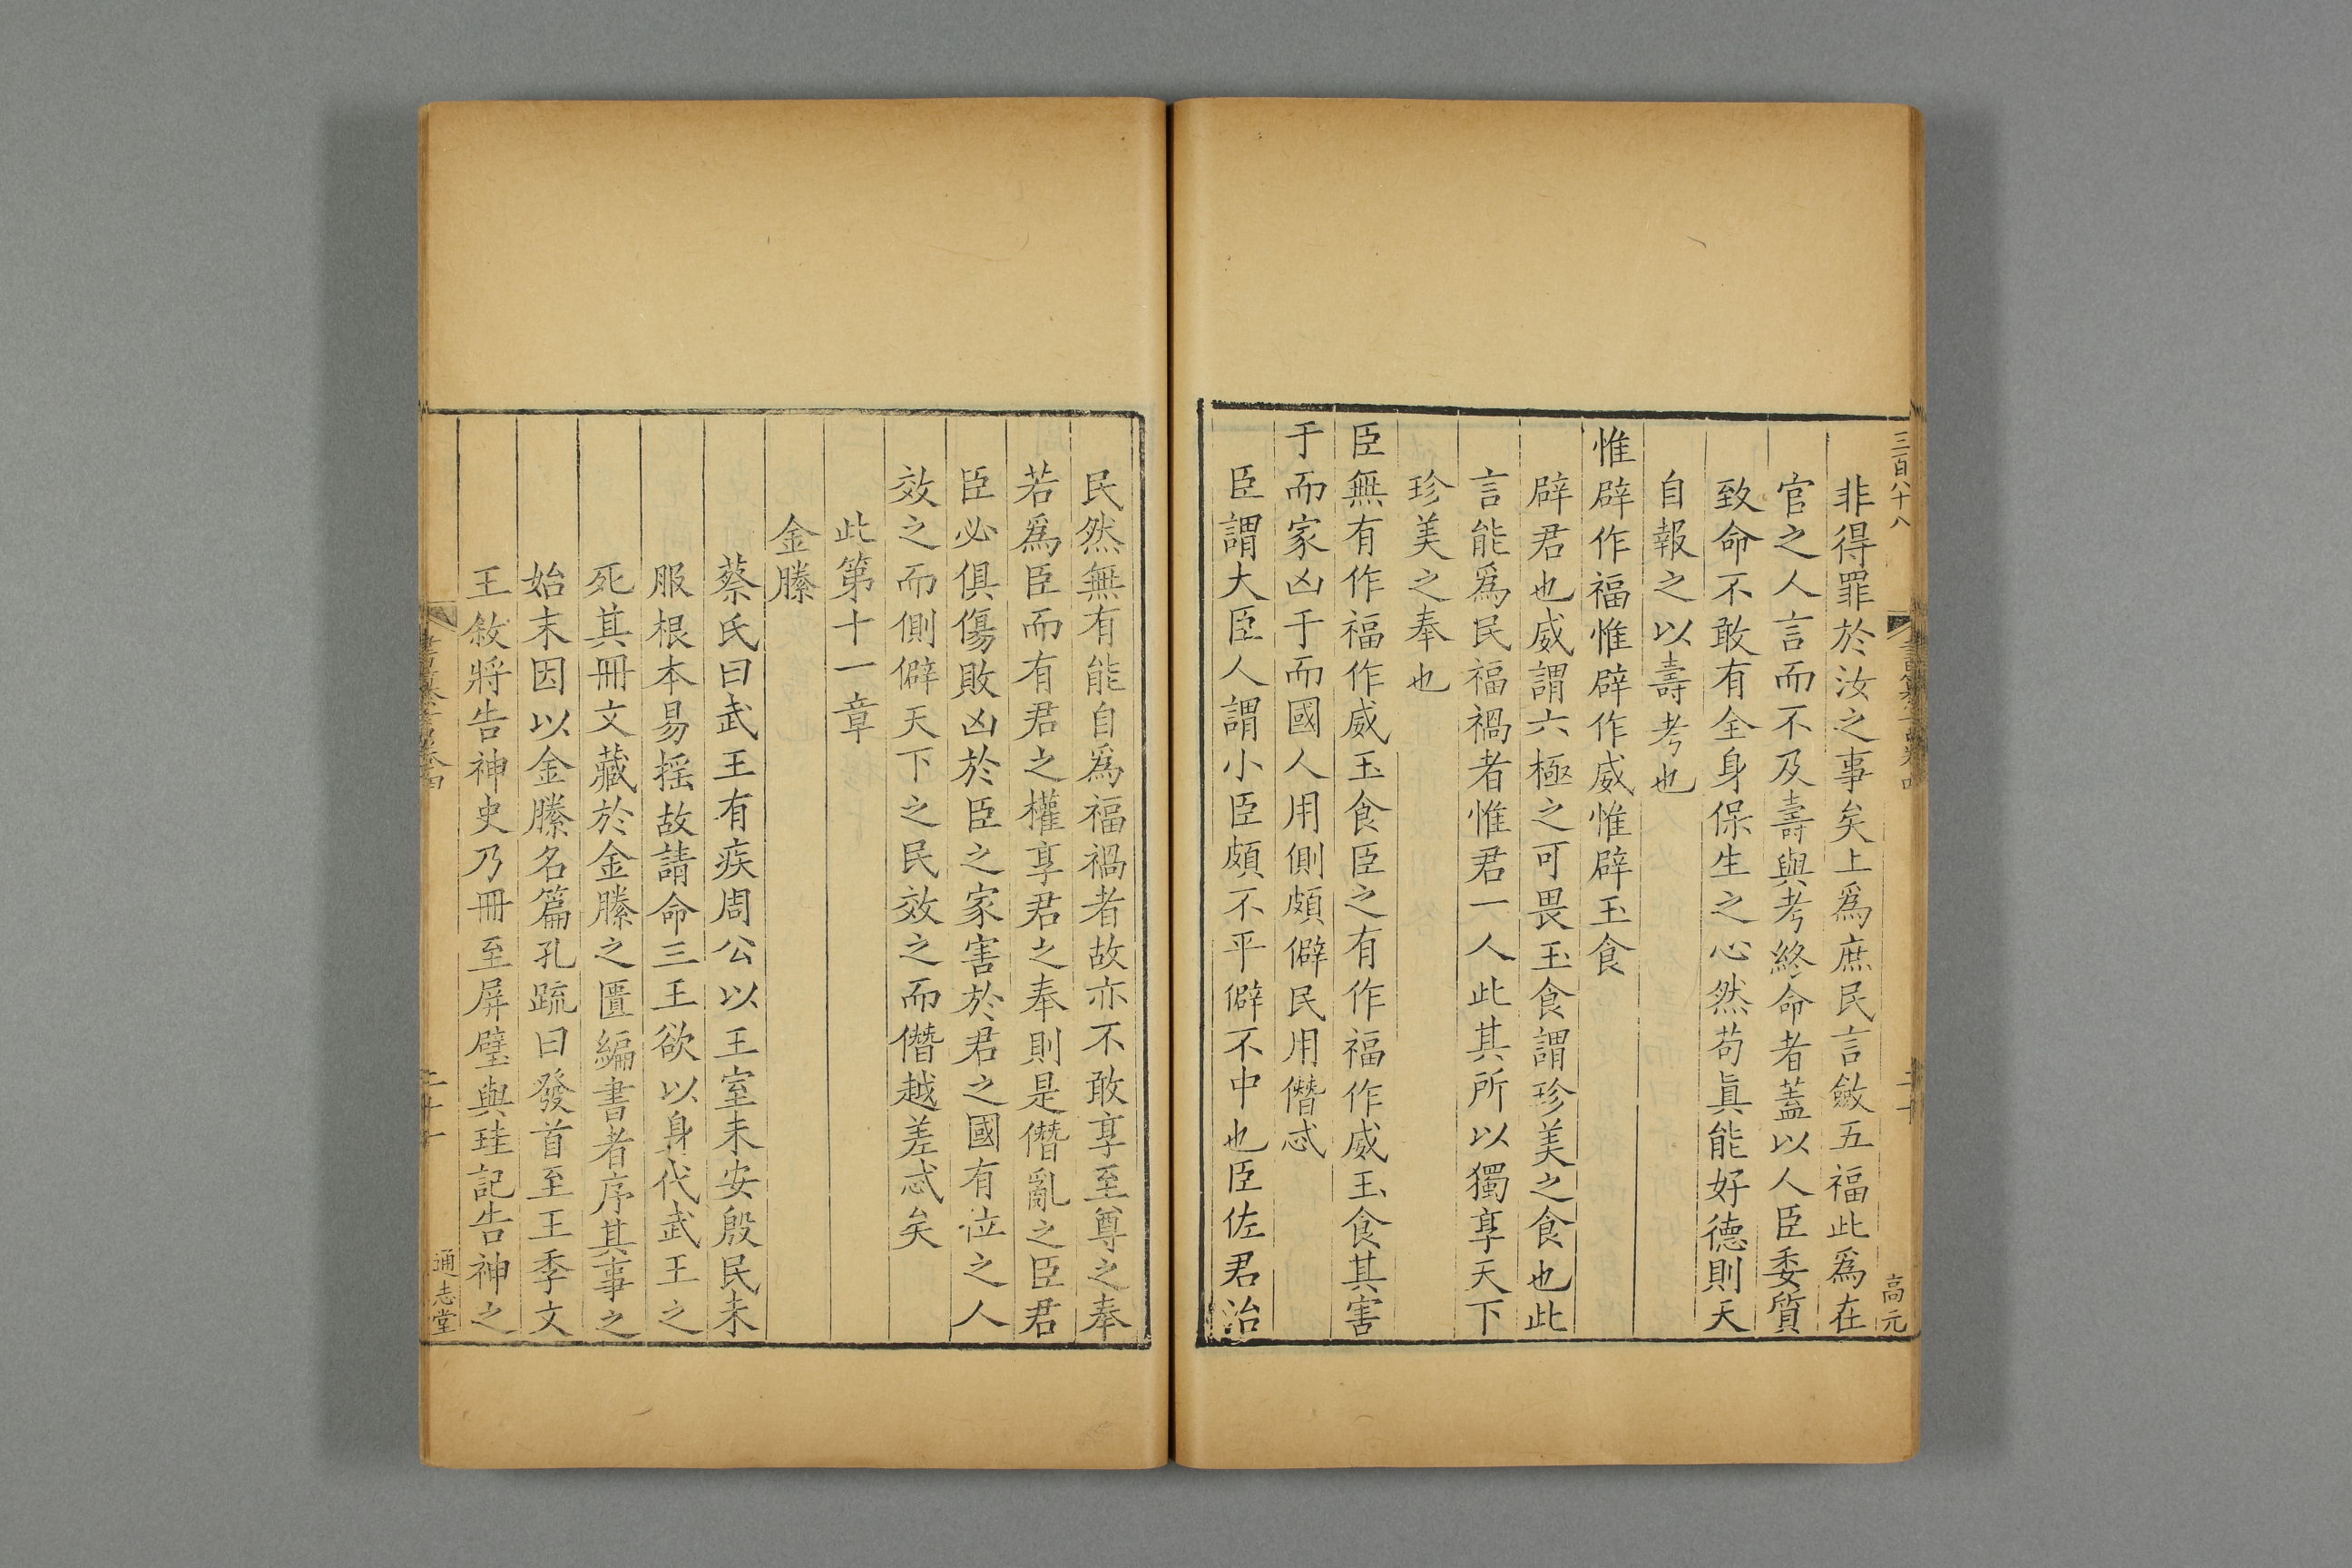 三百八十八
高元
非得罪於汝之事矣上爲庶民言斂五福此爲在
官之人言而不及壽與考終命者蓋以人臣委質
致命不敢有全身保生之心然苟眞能好德則天
自報之以壽考也
惟辟作福惟辟作威惟辟玉食
辟君也威謂六極之可畏玉食謂珍美之食也此
言能爲民福禍者惟君一人此其所以獨享天下
珍美之奉也
臣無有作福作威玉食臣之有作福作威玉食其害
于而家凶于而國人用側頗僻民用僭忒
臣謂大臣人謂小臣頗不平僻不中也臣佐君治
民然無有能自爲福禍者故亦不敢享至尊之奉
若爲臣而有君之權享君之奉則是僭亂之臣君
臣必俱傷敗凶於臣之家害於君之國有位之人
效之而側僻天下之民效之而僭越差忒矣
此第十一章
金縢
蔡氏曰武王有疾周公以王室未安殷民未
服根本易摇故請命三王欲以身代武王之
死其冊文藏於金縢之匱編書者序其事之
始末因以金縢名篇孔疏曰發首至王季文
王敘將告神史乃冊至屏璧與珪記告神之
二十一
通志堂